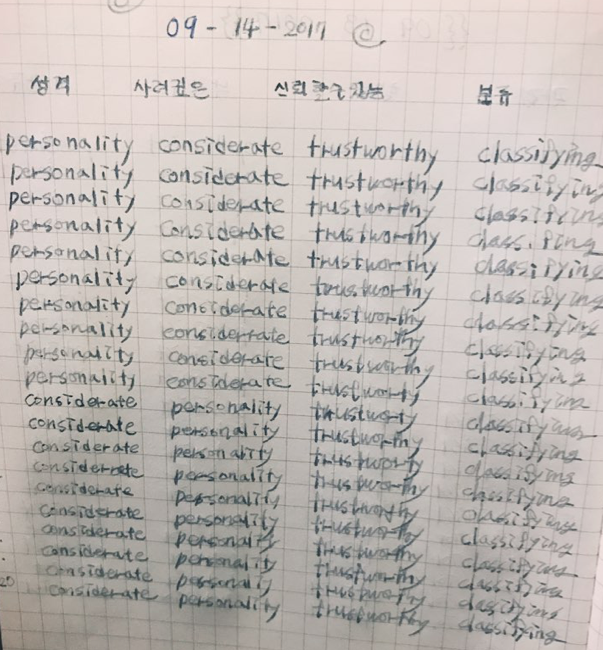 09 - 14 - 2017
성격 사려깊은 신뢰할수있는 분류
personality considerate trustworthy classifying
personality considerate trustworthy classifying
personality considerate trustworthy classifying
personality considerate trustworthy
personality considerate trustworthy classifying
personality considerate trustworthy classifying
personality considerate trustworthy classifying
personality trustworthy classifying
personality considerate trustworthy classifying
personality considerate trustworty classifying
considerate personality trustworty classifying
considerate personality trustworthy classifying
considerate personality trustworty classifying
personality trustworthy classifying
considerate personality trustworthy classifying
considerate personality trustworthy classifying
considerate personality trustworthy classifying
considerate personality trustworthy classifying
considerate personality trustworthy classifying
20 considerate personality trustworthy classifying